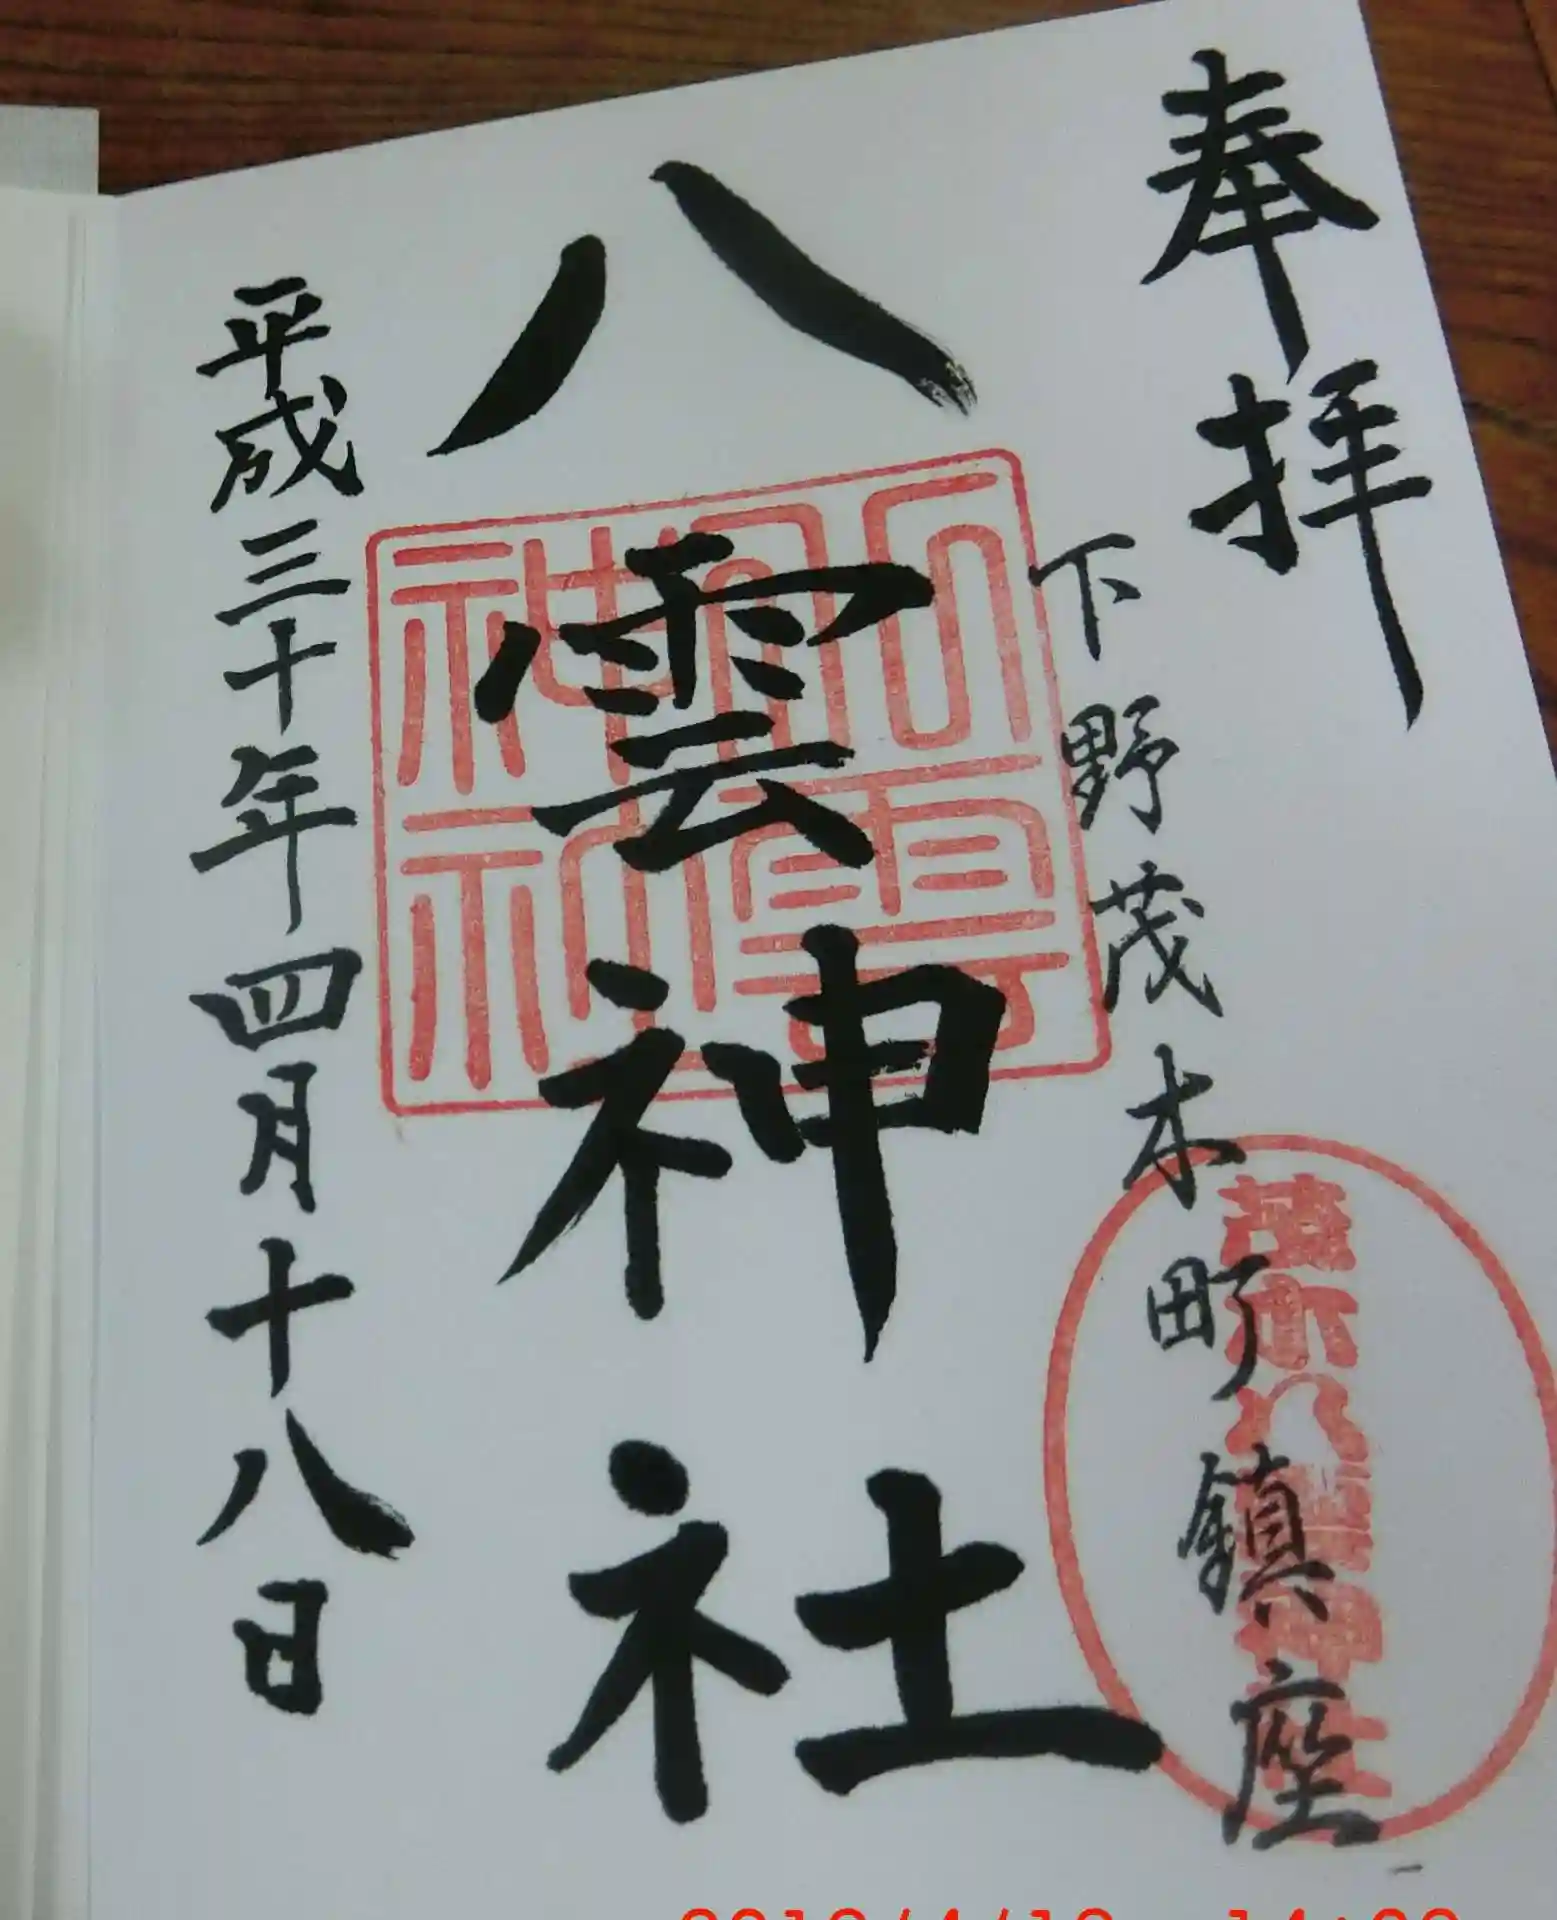 奉拝
下野茂木町鎮座
八雲神社
平成三十年四月十八日
茂木八雲神社